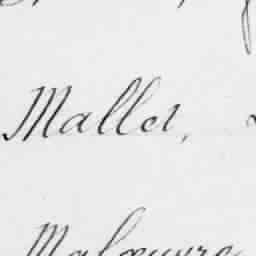 Mallet,
Malœuvre